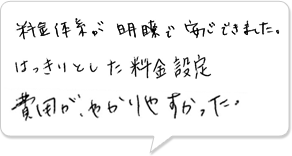 料金体系が明瞭で安心できました。
はっきりとした料金設定
費用が、わかりやすかった。